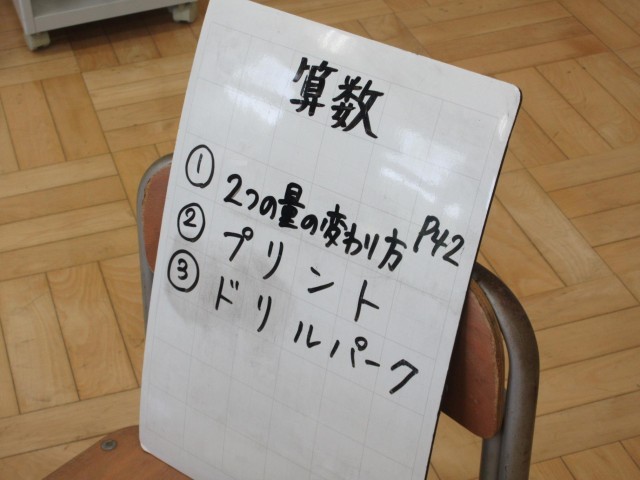 算数
① 2つの量の変わり方 P42
② プリント
③ ドリルパーク